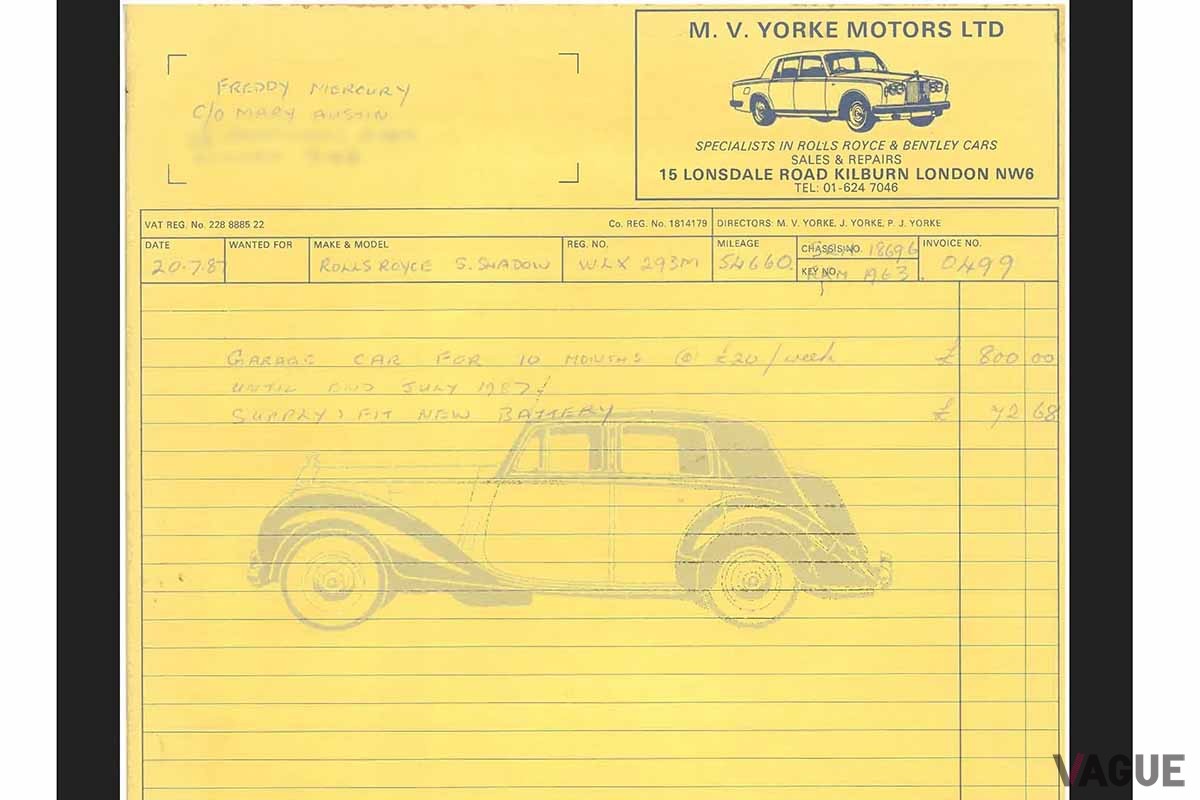 M. V. YORKE MOTORS LTD
SPECIALISTS IN ROLLS ROYCE & BENTLEY CARS
SALES & REPAIRS
15 LONSDALE ROAD KILBURN LONDON NW6
TEL: 01-624 7046
FREDDY MERCURY
C/O MARY AUSTIN
VAT REG. No. 228 8885 22
Co. REG. No. 1814179
DIRECTORS: M. V. YORKE, J. YORKE, P. J. YORKE
DATE
20.7.87
WANTED FOR
MAKE & MODEL
ROLLS ROYCE S. SHADOW
REG. NO.
WLX 293M
MILEAGE
54660.
CHASSIS NO.
SRH 18696
KEY NO.
INVOICE NO.
0499
GARAGE CAR FOR 10 MONTHS @ £20/week £ 800 00
UNTIL END JULY 1987
SUPPLY & FIT NEW BATTERY £ 72 68
VAGUE